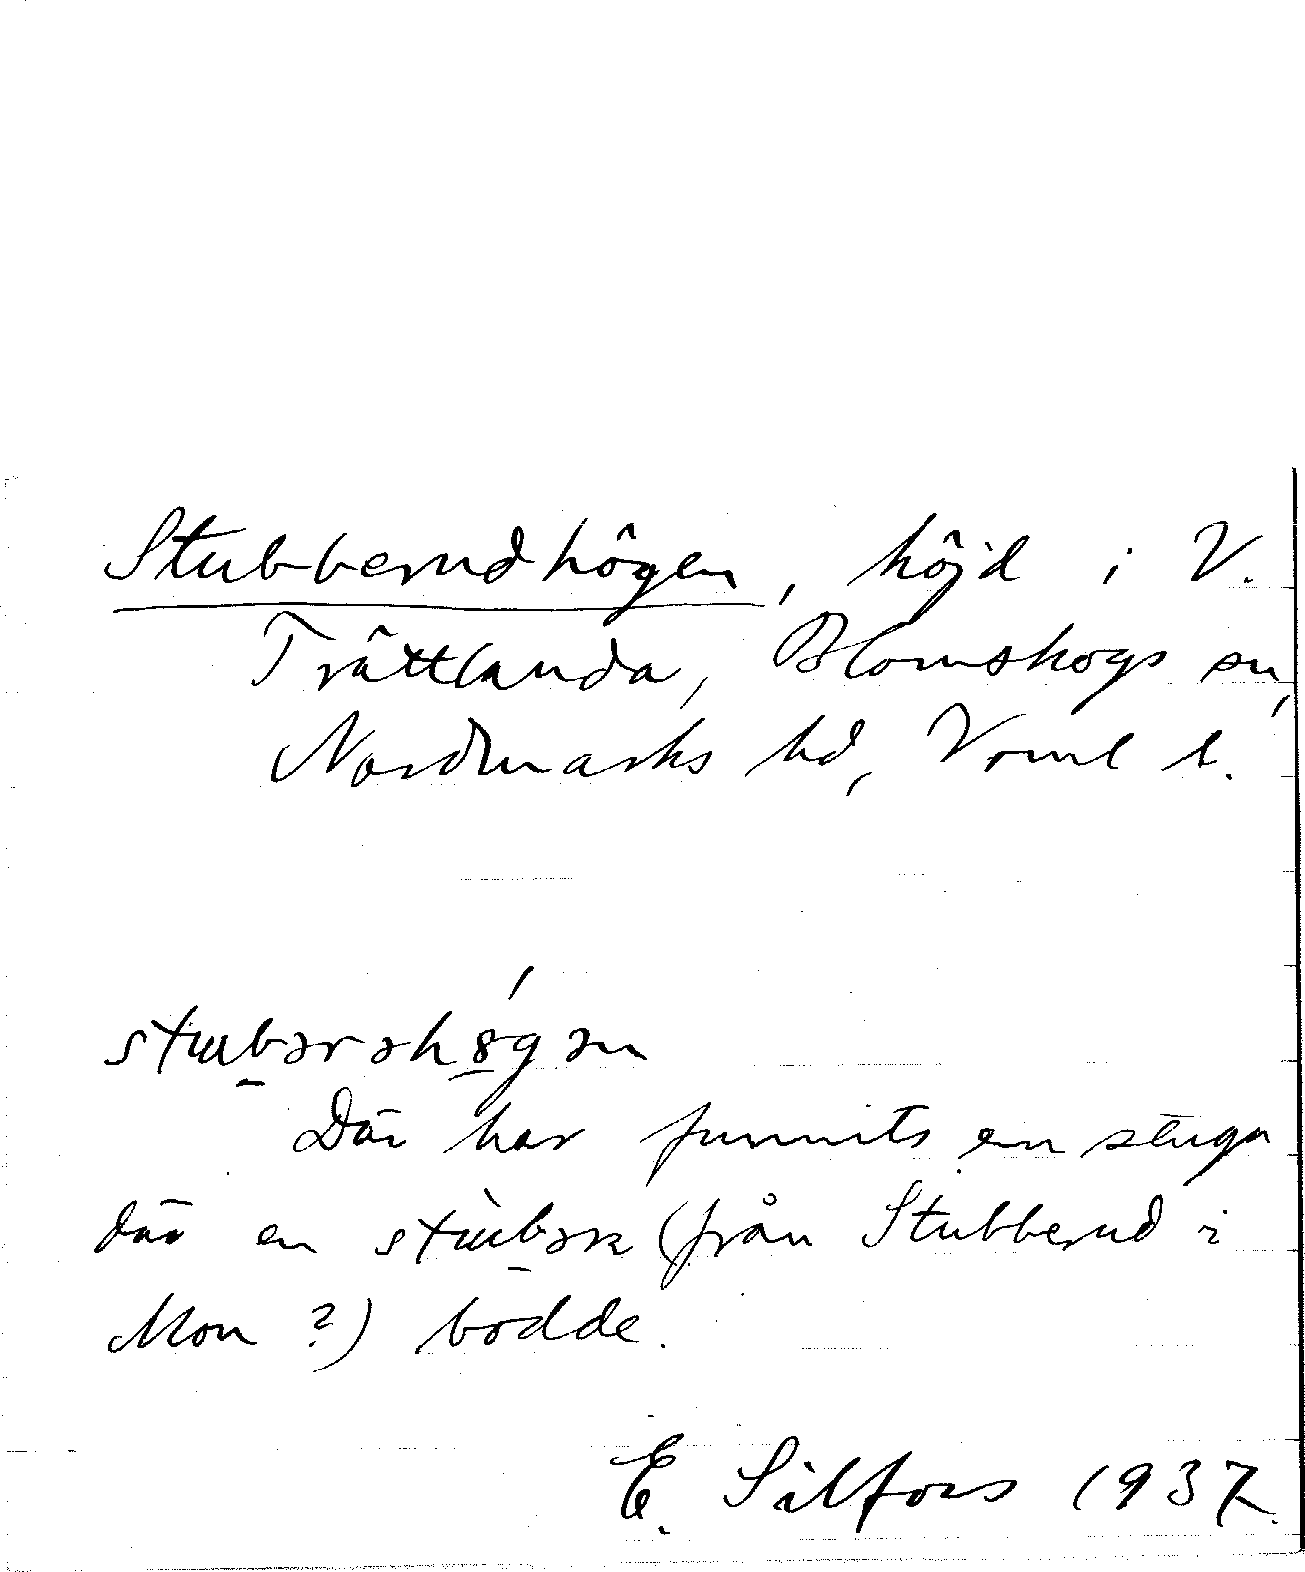 Stubberudhögen, höjd i V.
Trättlanda, Blomskogs sn,
Nordmarks hd, Vrml l.
stɯbərəhøgən
Där har funnits en stuga
där en stɯbərk (från Stubberud i
Mon ?) bodde.
E. Silfors 1937.